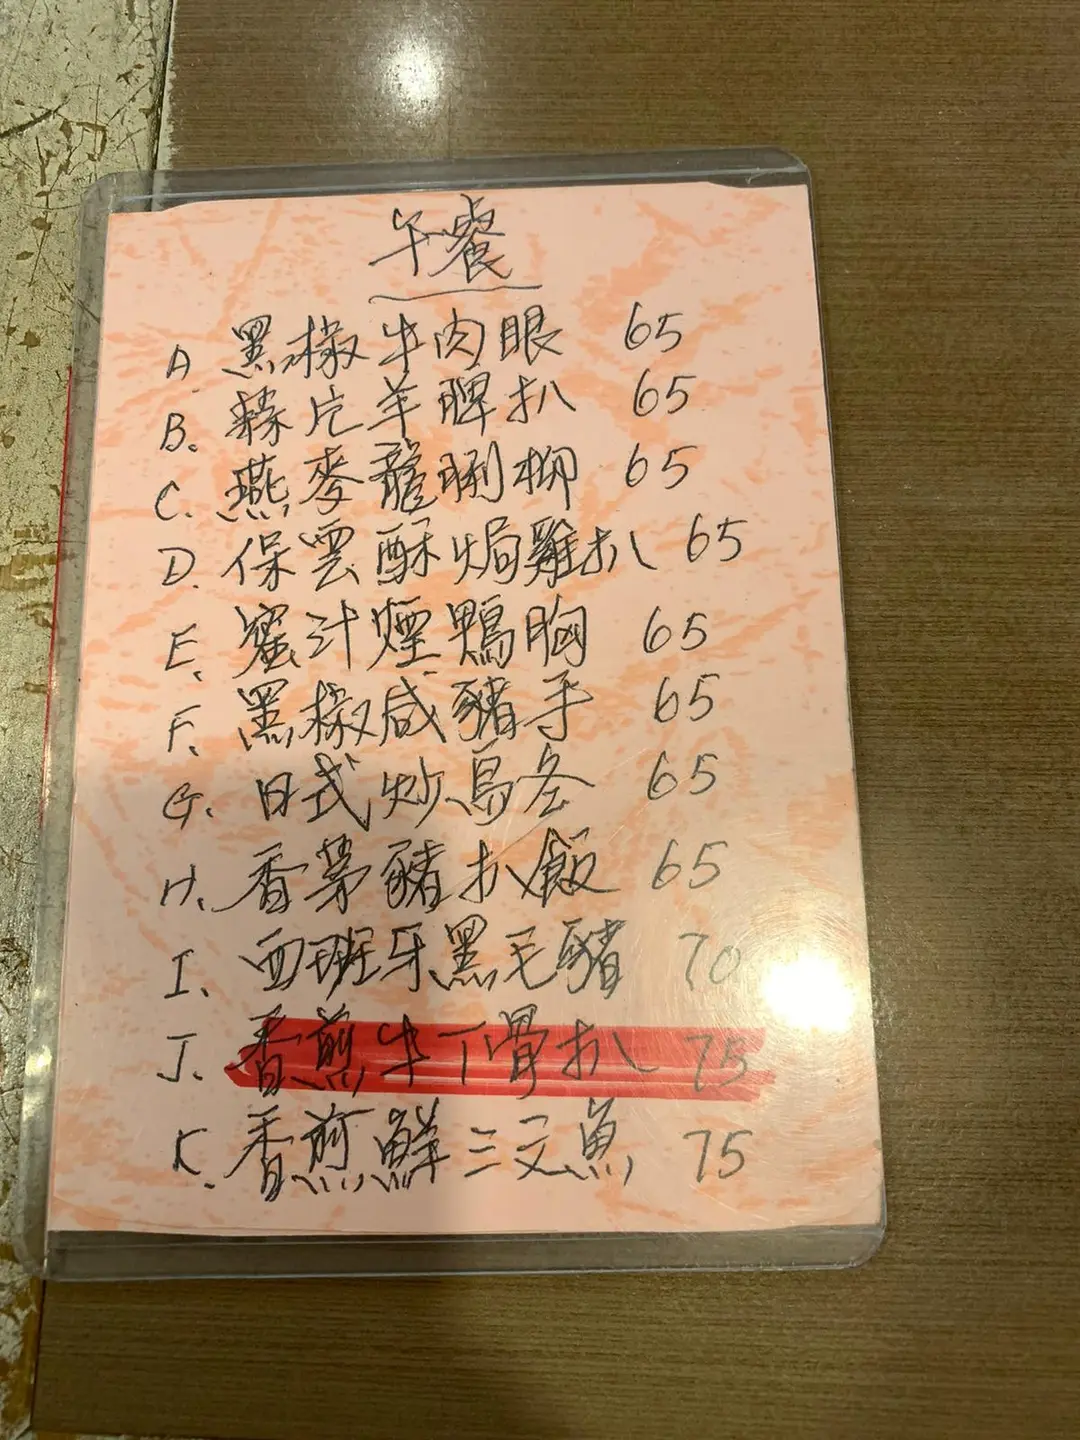 午餐
A. 黑椒牛肉眼 65
B. 片羊脾扒 65
C. 燕麥龍脷柳 65
D. 保雲酥焗雞扒 65
E. 蜜汁煙鴨胸 65
F. 黑椒咸豬手 65
G. 日式炒烏冬 65
H. 香茅豬扒飯 65
I. 西班牙黑毛豬 70
J. 香煎牛丁骨扒 75
K. 香煎鮮三文魚 75